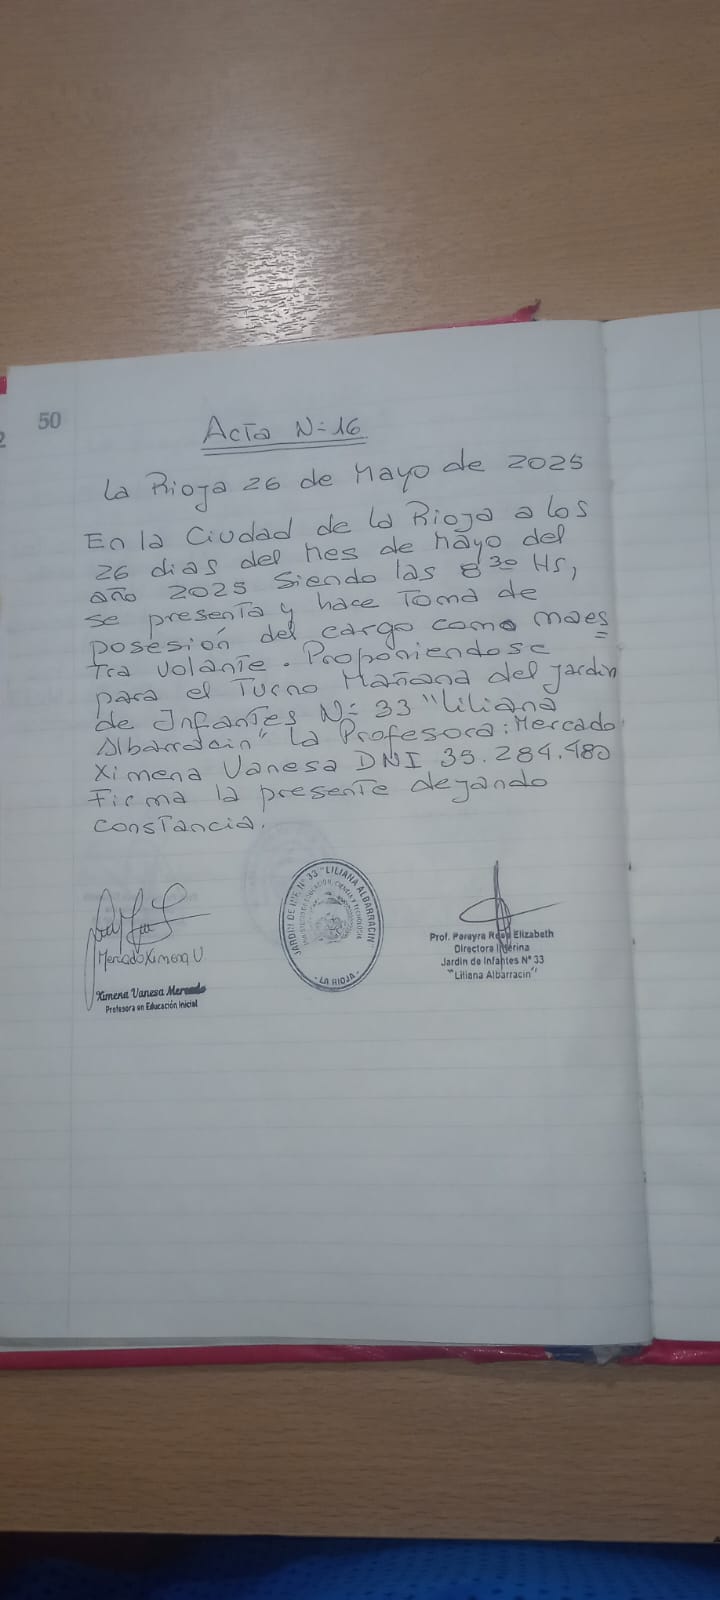 50
2
Acta N: 16
La Rioja 26 de Mayo de 2025
En la Ciudad de la Rioja a los
26 dias del mes de Mayo del
año 2025 Siendo las 8 30 Hs,
se presenta y hace Toma de
posesión del cargo como maes
tra volante. Proponiendose
para el Turno Mañana del jardin
de Infantes N: 33 "Liliana
Albarracin" la Profesora: Mercado
Ximena Vanesa DNI 35.284.480
Firma la presente dejando
constancia.
Mercado Ximena V
Ximena Vanesa Mercado
Profesora en Educación Inicial
JARDIN DE INF. N° 33 "LILIANA ALBARRACIN"
MINISTERIO DE EDUCACIÓN, CIENCIA Y TECNOLOGIA
- LA RIOJA -
Prof. Pereyra Rosa Elizabeth
Directora Interina
Jardin de Infantes N° 33
"Liliana Albarracin"